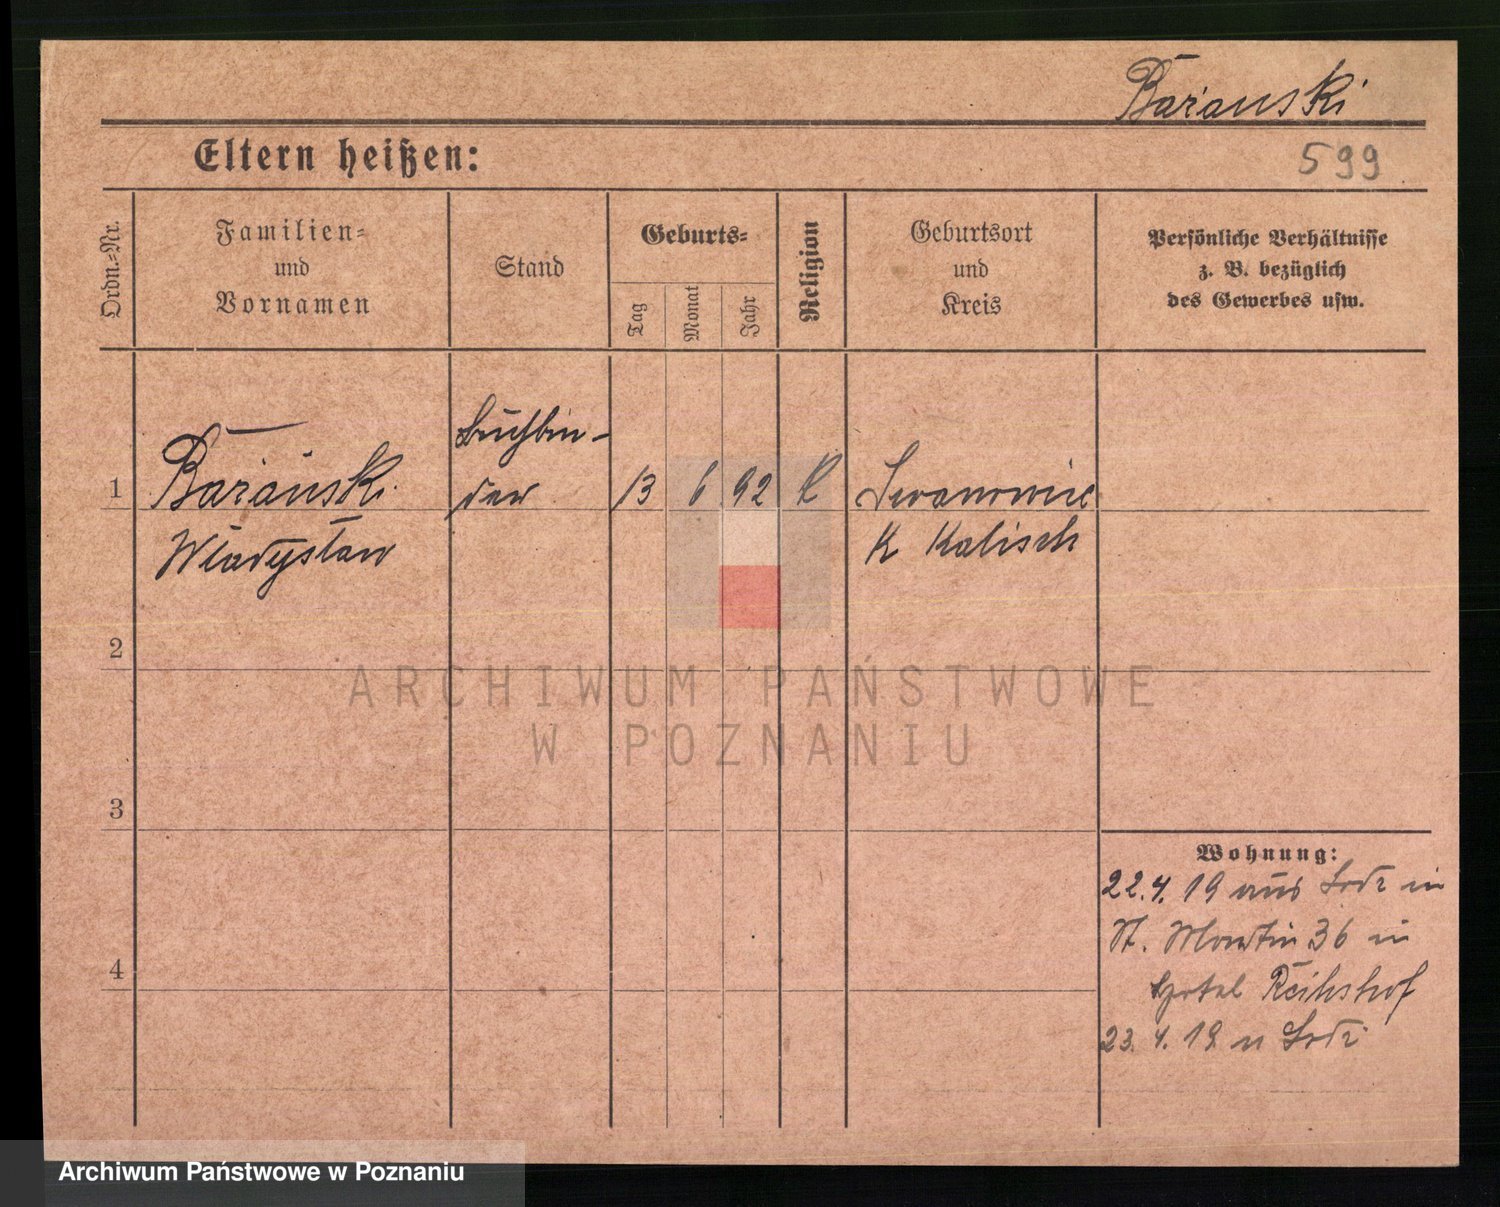 Barański
Eltern heißen:
599
Ordn.-Nr.
Familien-
und
Vornamen
Stand
Geburts-
Tag
Monat
Jahr
Religion
Geburtsort
und
Kreis
Persönliche Verhältnisse
z. B. bezüglich
des Gewerbes usw.
1
Barański
Władysław
Buchbin-
der
13 6 92 K
Iwanowice
K Kalisch
2
3
4
Wohnung:
22.4.19 aus Lodz in
St. Martin 36 in
Hotel Reichshof
23.4.19 n Lodz
ARCHIWUM PAŃSTWOWE
W POZNANIU
Archiwum Państwowe w Poznaniu